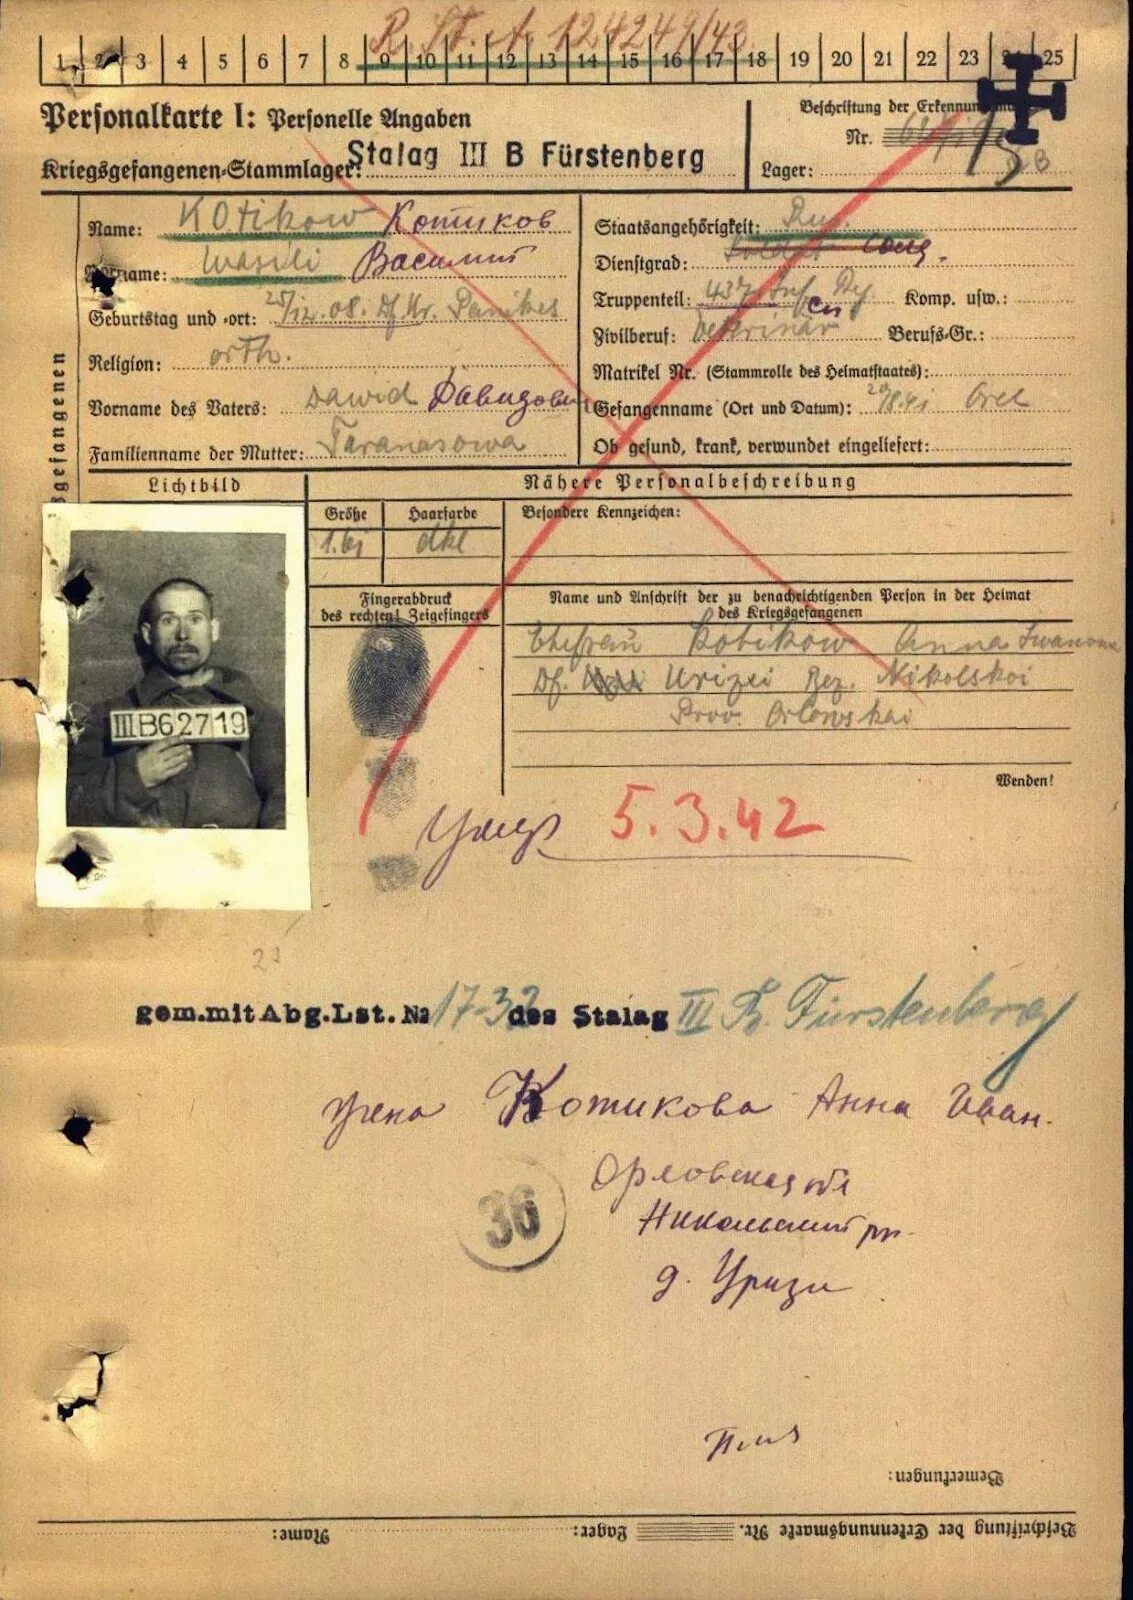 R. St. A. 124249/43
1 2 3 4 5 6 7 8 9 10 11 12 13 14 15 16 17 18 19 20 21 22 23 24 25
Personalkarte I: Personelle Angaben
Kriegsgefangenen-Stammlager: Stalag III B Fürstenberg
Beschriftung der Erkennungsmarke
Nr.
Lager:
Name: Kotikow Котиков
Vorname: Wasili Василий
Geburtstag und -ort: 25/12.08. Df. Kr.
Religion: orth.
Vorname des Vaters: Dawid Давидович
Familienname der Mutter: Taranasowa
Staatsangehörigkeit: Rus.
Dienstgrad: Soldat Солд.
Truppenteil: 437 Inf. Rg. сп Komp. usw.:
Zivilberuf: Veterinär Berufs-Gr.:
Matrikel Nr. (Stammrolle des Heimatstaates):
Gefangenname (Ort und Datum): 20/8.41 Orel
Ob gesund, krank, verwundet eingeliefert:
Lichtbild
Nähere Personalbeschreibung
Größe Haarfarbe Besondere Kennzeichen:
1.61 dkl
III B 62719
Fingerabdruck
des rechten! Zeigefingers
Name und Anschrift der zu benachrichtigenden Person in der Heimat
des Kriegsgefangenen
Ehefrau Kotikow Anna Iwanowa
Df. Urizei Bez. Nikolskoi
Prov. Orlowskai
Wenden!
Умер 5.3.42
gem.mit Abg.Lst.№ 17-32 des Stalag III B. Fürstenberg
жена Котикова Анна Иван.
Орловская обл
Никольский рн.
д. Урици
36
Плиз
Bemerkungen:
Beschriftung der Erkennungsmarke Nr. Lager: Name: